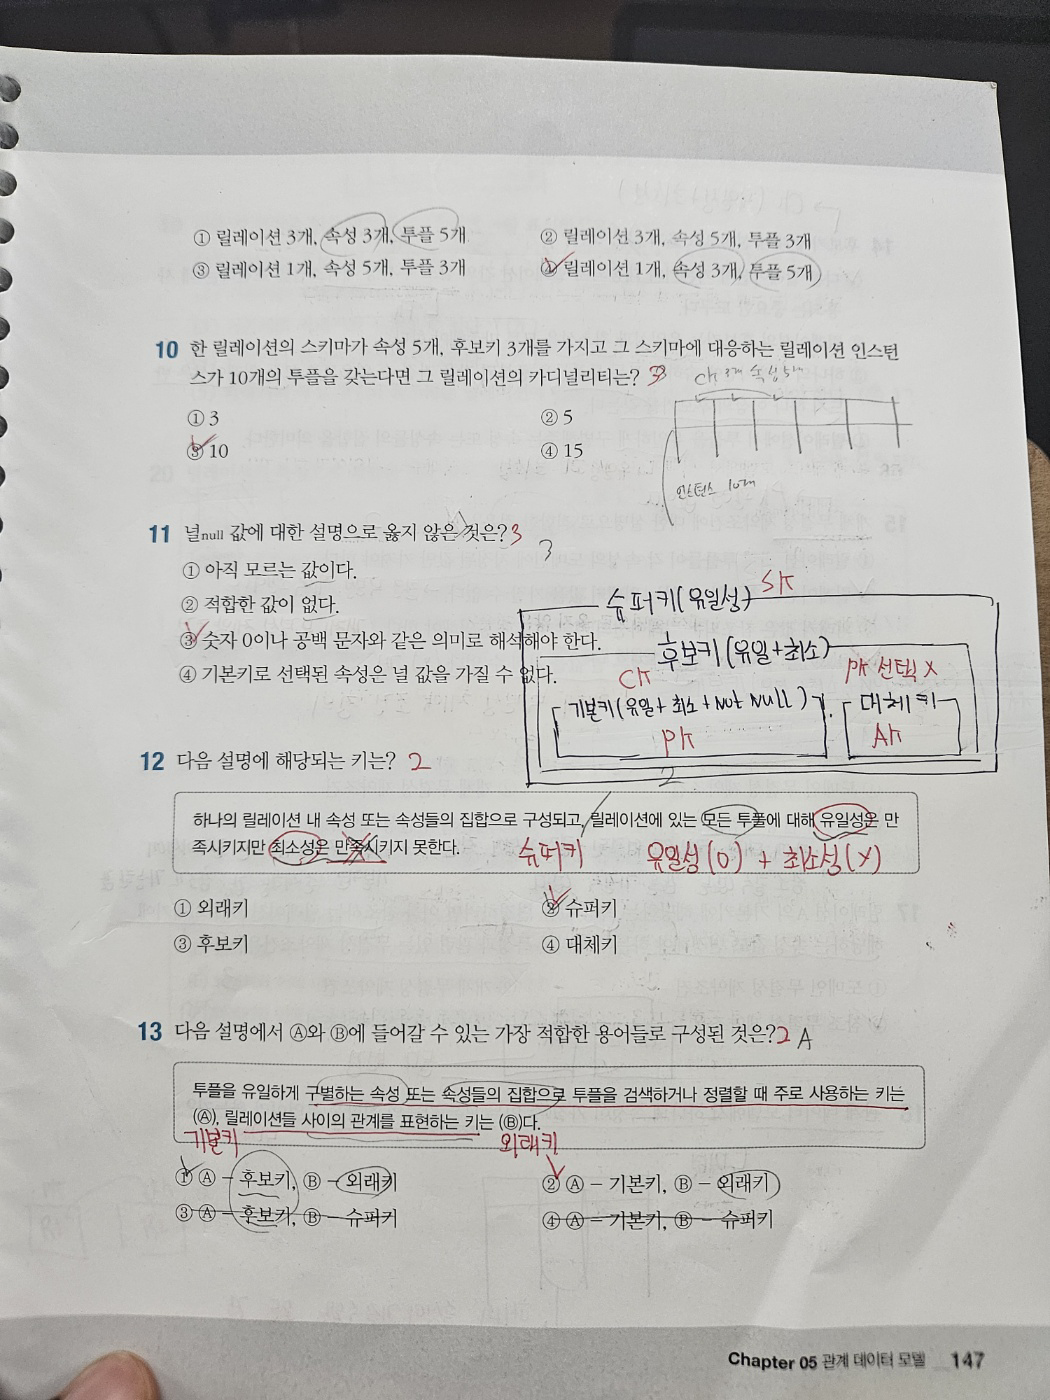 ① 릴레이션 3개, 속성 3개, 투플 5개
② 릴레이션 3개, 속성 5개, 투플 3개
③ 릴레이션 1개, 속성 5개, 투플 3개
④ 릴레이션 1개, 속성 3개, 투플 5개
10 한 릴레이션의 스키마가 속성 5개, 후보키 3개를 가지고 그 스키마에 대응하는 릴레이션 인스턴
스가 10개의 투플을 갖는다면 그 릴레이션의 카디널리티는? 3
CK 3개 속성 5개
① 3
② 5
③ 10
④ 15
인스턴스 10개
11 널null 값에 대한 설명으로 옳지 않은 것은? 3
3
① 아직 모르는 값이다.
② 적합한 값이 없다.
③ 숫자 0이나 공백 문자와 같은 의미로 해석해야 한다.
④ 기본키로 선택된 속성은 널 값을 가질 수 없다.
슈퍼키(유일성) SK
후보키(유일+최소)
CK
PK 선택 X
기본키(유일+최소+Not Null)
PK
대체키
AK
12 다음 설명에 해당되는 키는? 2
2
하나의 릴레이션 내 속성 또는 속성들의 집합으로 구성되고, 릴레이션에 있는 모든 투플에 대해 유일성은 만
족시키지만 최소성은 만족시키지 못한다.
슈퍼키 유일성(O) + 최소성(X)
① 외래키
② 슈퍼키
③ 후보키
④ 대체키
13 다음 설명에서 Ⓐ와 Ⓑ에 들어갈 수 있는 가장 적합한 용어들로 구성된 것은? 2 A
투플을 유일하게 구별하는 속성 또는 속성들의 집합으로 투플을 검색하거나 정렬할 때 주로 사용하는 키는
(Ⓐ), 릴레이션들 사이의 관계를 표현하는 키는 (Ⓑ)다.
기본키
외래키
① Ⓐ – 후보키, Ⓑ – 외래키
② Ⓐ – 기본키, Ⓑ – 외래키
③ Ⓐ – 후보키, Ⓑ – 슈퍼키
④ Ⓐ – 기본키, Ⓑ – 슈퍼키
Chapter 05 관계 데이터 모델 147